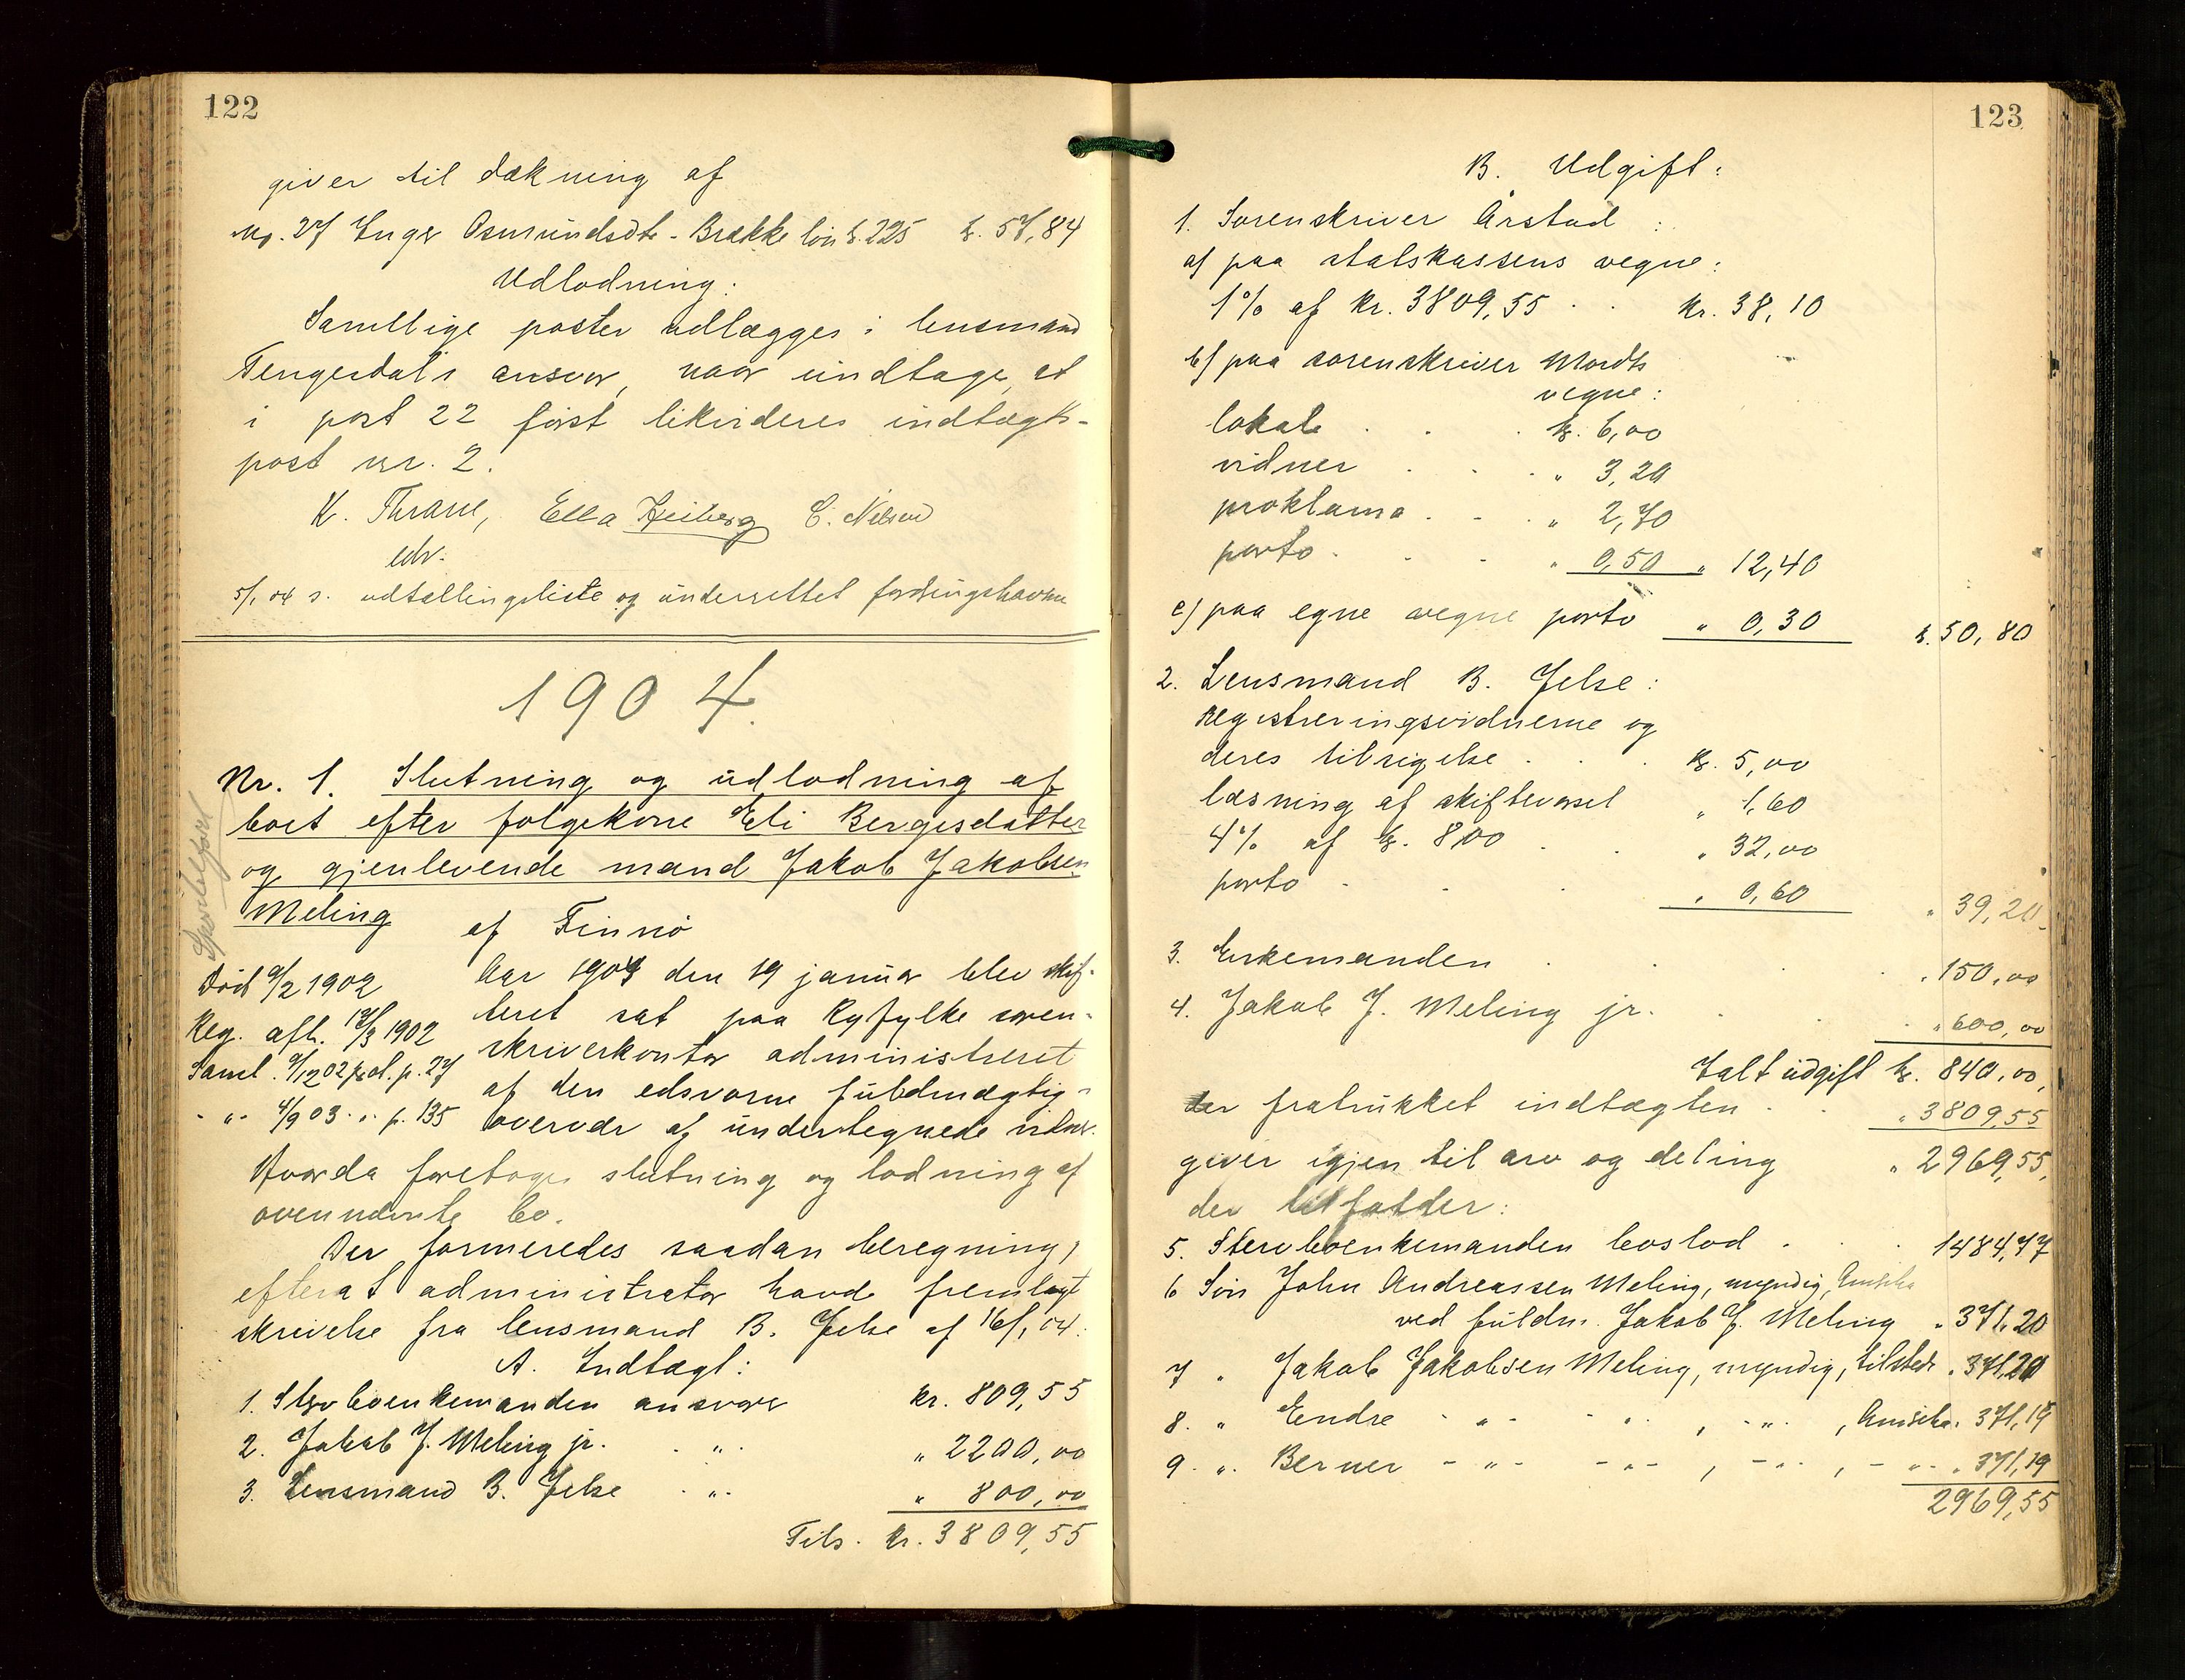 122
giver til dækning af
No. 27 Inger Osmundsdtr. Brække løn k. 225 k. 57,84
Udlodning:
Samtlige poster udlægges i lensmand
Tengesdals ansvar, naar undtages, at
i post 22 først likvideres indtægts-
post nr. 2.
K. Thrane, Ella Heiberg C. Nilsen
edv.
5/1 04 s. udtællingsliste og underrettet fordringshavere
1904.
Nr. 1. Slutning og udlodning af
boet efter følgekone Eli Bergesdatter
og gjenlevende mand Jakob Jakobsen
Meling af Finnø
Død 9/2 1902
Aar 1904 den 19 januar blev skif-
Reg. afh. 17/3 1902
teret sat paa Ryfylke soren-
skriverkontor administreret
Saml. 9/12 02 p. 27
af den edsvorne fuldmægtig
" 4/9 03 " p. 135
overvær af undertegnede vidner.
Hvorda foretoges slutning og lodning af
ovennævnte bo.
Der formeredes saadan beregning,
efterat administrator havde fremlagt
skrivelse fra lensmand B. Jelse af 16/1 04:
A. Indtægt:
1. Stervboenkemanden ansvarer kr. 809,55
2. Jakob J. Meling jr. " " 2200,00
3. Lensmand B. Jelse " " 800,00
Tils. kr. 3809,55
123
B. Udgift:
1. Sorenskriver Årstad:
a) paa statskassens vegne:
1% af kr. 3809,55 kr. 38,10
b) paa sorenskriver Mordts
vegne:
lokale k. 6,00
vidner " 3,20
proklama " 2,70
porto " 0,50 " 12,40
c) paa egne vegne porto " 0,30 k. 50,80
2. Lensmand B. Jelse:
registreringsvidnerne og
deres tilsigelse k. 5,00
læsning af skiftevarsel " 1,60
4% af k. 800 " 32,00
porto " 0,60 " 39,20
3. Enkemanden " 150,00
4. Jakob J. Meling jr. " 600,00
Ialt udgift k. 840,00,
der fratrukket indtægten " 3809,55
giver igjen til arv og deling " 2969,55,
der tilfalder:
5. Stervboenkemanden boslod 1484,77
6 Søn John Andreassen Meling, myndig, Amerika
ved fuldm. Jakob J. Meling " 371,20
7 " Jakob Jakobsen Meling, myndig, tilstede " 371,20
8. " Endre - " - - " - , - " - , Amerika " 371,19
9. " Berner - " - - " - , - " - , - " - " 371,19
2969,55